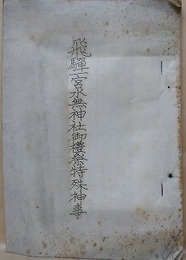 飛騨一宮水無神社御禮祭特殊神事